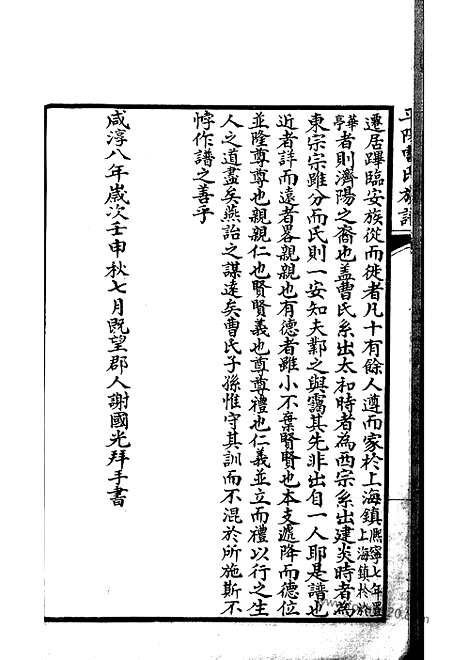 平陽曹氏族譜
遷居蹕臨安族從而徙者凡十有餘人遵而家於上海鎮熙寧七年置上海鎮於於
華亭者則濟陽之裔也蓋曹氏系出太和時者為西宗系出建炎時者為
東宗宗雖分而氏則一安知夫鄴之與靄其先非出自一人耶是譜也
近者詳而遠者畧親親也有德者雖小不棄賢賢也本支遞降而德位
並隆尊尊也親親仁也賢賢義也尊尊禮也仁義並立而禮以行之生
人之道盡矣燕詒之謀遠矣曹氏子孫惟守其訓而不混於所施斯不
悖作譜之善乎
咸淳八年嵗次壬申秋七月既望郡人謝國光拜手書